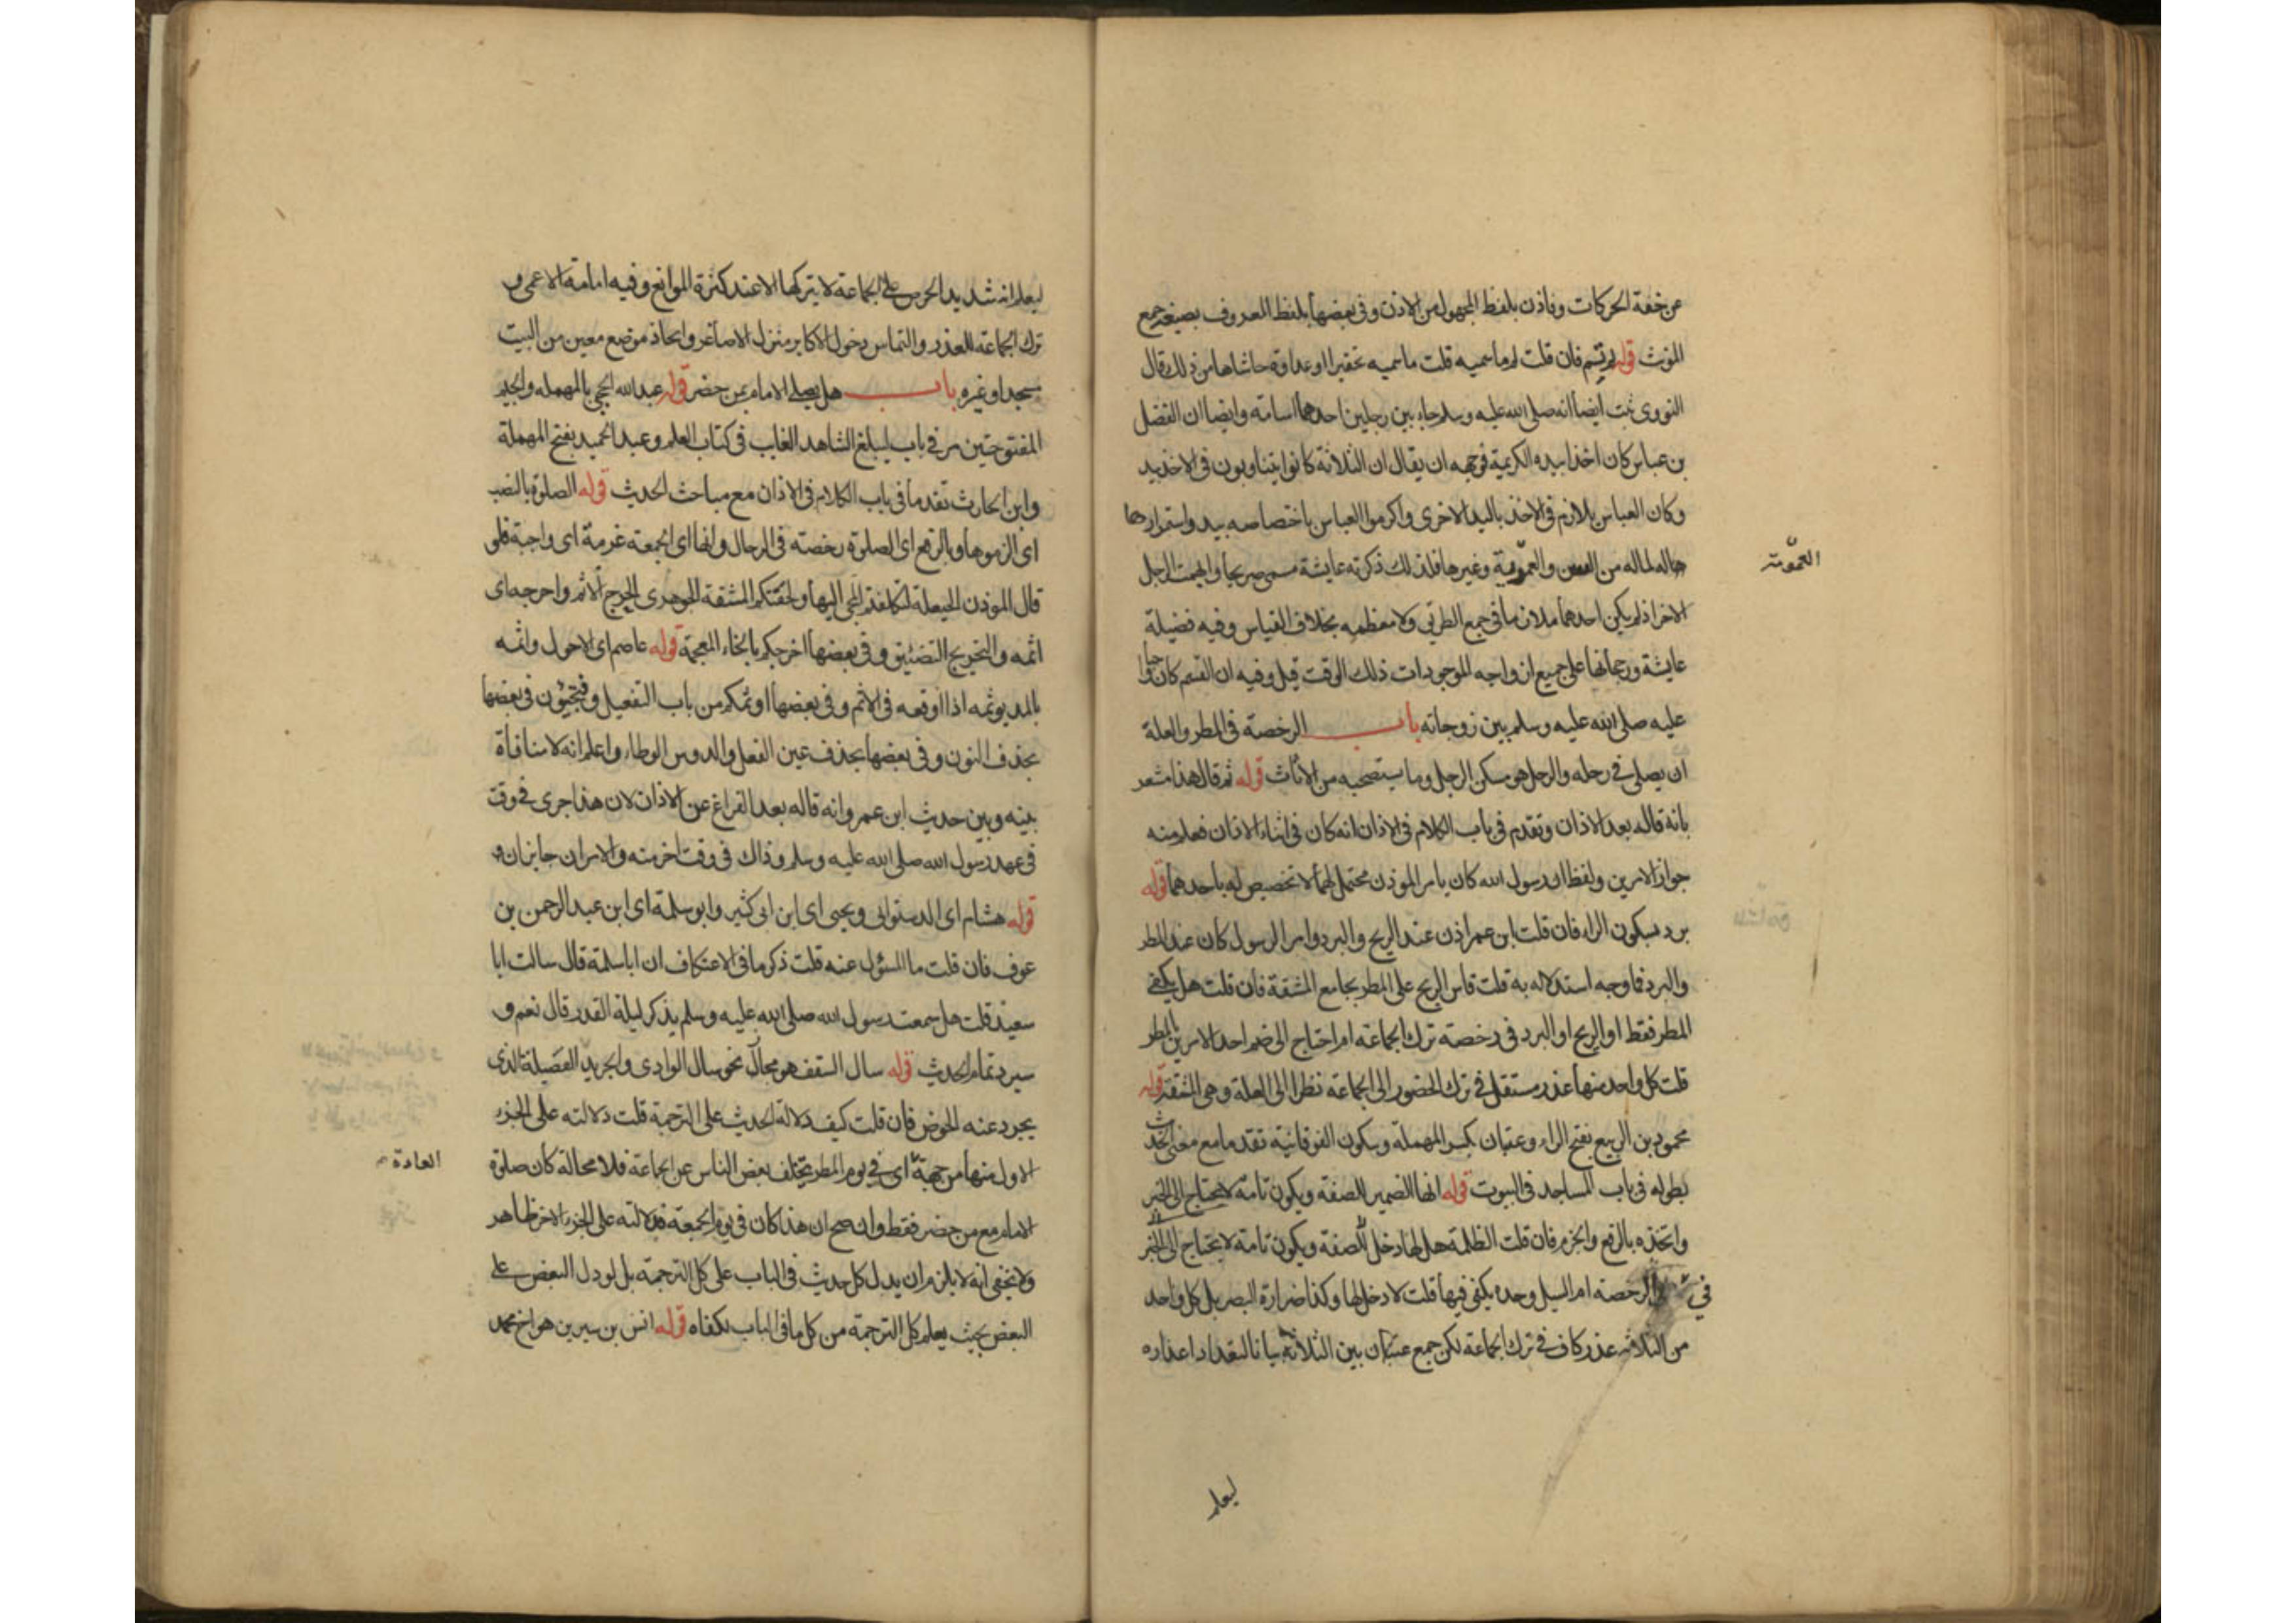 عن خفة الحركات وفاذن بلفظ المجهول من الاذن وفى بعضها بلفظ المعروف بصيغة جمع
المونث قوله لم تسم فان قلت لم ما سميه قلت ما سميه تحقيرا او عداوة حاشاها من ذلك قال
النووى ثبت ايضا انه صلى الله عليه وسلم جاء بين رجلين احدهما اسامة وايضا ان الفضل
بن عباس كان اخذا بيده الكريمة فوجهه ان يقال ان الثلاثة كانوا يتناوبون فى الاخذ بيد
وكان العباس يلازم فى الاخذ باليد الاخرى واكرموا العباس باختصاصه بيد واستمرارها
حاله لماله من السن والعمومة وغيرها فلذلك ذكرته عايشة مسمى صريحا وابهمت الرجل
العمومة
الاخر اذ لم يكن احدهما ملازما فى جميع الطريق ولا معظمه بخلاف العباس وفيه فضيلة
عايشة ورجحانها على جميع ازواجه الموجودات ذلك الوقت قيل وفيه ان القسم كان واجبا
عليه صلى الله عليه وسلم بين زوجاته باب الرخصة فى المطر والعلة
ان يصلى فى رحله والرحل هو مسكن الرجل وما يستصحبه من الاثاث قوله ثم قال هذا مشعر
بانه قاله بعد الاذان وتقدم فى باب الكلام فى الاذان انه كان فى اثناء الاذان فعلم منه
جواز الامرين ولفظ ان رسول الله كان يامر الموذن محتمل لهما لا تخصيص له باحدهما قوله
برد بسكون الراء فان قلت ابن عمر اذن عند الريح والبرد وامر الرسول كان عند المطر
والبرد فما وجه استدلاله به قلت قاس الريح على المطر بجامع المشقة فان قلت هل يكفى
المطر فقط او الريح او البرد فى رخصة ترك الجماعة ام احتاج الى ضم احد الامرين بالمطر
قلت كل واحد منها عذر مستقل فى ترك الحضور الى الجماعة نظرا الى العلة وهى المشقة قوله
محمود بن الربيع بفتح الراء وعتبان بكسر المهملة وسكون الفوقانية تقدما مع معنى الحديث
بطوله فى باب المساجد فى البيوت قوله انها الضمير للصفة ويكون تامة لا يحتاج الى الخبر
واتخذه بالرفع والجزم فان قلت الظلمة هل لها دخل للصفة ويكون تامة لا يحتاج الى الخبر
فى الرخصة ام السيل وحده يكفى فيها قلت لا دخل لها وكذا ضرارة البصر بل كل واحد
من الثلاثة عذر كاف فى ترك الجماعة لكن جمع عتبان بين الثلاثة بيانا لتعداد اعذاره
ليعلم
ليعلم انه شديد الحرص على الجماعة لا يتركها الا عند كثرة الموانع وفيه امامة الاعمى و
ترك الجماعة للعذر والتماس دخول الاكابر منزل الاصاغر واتخاذ موضع معين من البيت
مسجدا وغيره باب هل يصلى الامام بمن حضر قوله عبد الله الحجبى بالمهملة والجيم
المفتوحتين مر فى باب ليبلغ الشاهد الغايب فى كتاب العلم وعبد الحميد بفتح المهملة
وابن الحارث تقدما فى باب الكلام فى الاذان مع مباحث الحديث قوله الصلوة بالنصب
اى الزموها وبالرفع اى الصلوة رخصته فى الرحال وانها اى الجمعة عزمة اى واجبة فلو
قال الموذن الحيعلة لتكلفتم المجئ اليها ولحقتكم المشقة الجوهرى الحرج الاثم واحرجه اى
اثمه والتحريج التضييق وفى بعضها اخرجكم بالخاء المعجمة قوله عاصم اى الاحول واثمه
بالمد يوثمه اذا اوقعه فى الاثم وفى بعضها اوثمكم من باب التفعيل وفتجيئون فى بعضها
بحذف النون وفى بعضها بحذف عين الفعل والدوس الوطاء واعلم انه لا منافاة
بينه وبين حديث ابن عمر وانه قاله بعد الفراغ عن الاذان لان هذا جرى فى وقت
فى عهد رسول الله صلى الله عليه وسلم وذاك فى وقت اخر منه والامران جايزان و
قوله هشام اى الدستوائى ويحيى اى ابن ابى كثير وابو سلمة اى ابن عبد الرحمن بن
عوف فان قلت ما المسئول عنه قلت ذكر ما فى الاعتكاف ان ابا سلمة قال سالت ابا
سعيد قلت هل سمعت رسول الله صلى الله عليه وسلم يذكر ليلة القدر قال نعم و
سيرد تمام الحديث قوله سال السقف هو مجاز نحو سال الوادى والجريد الفصيلة الذى
يجرد عنه الخوص فان قلت كيف دلالة الحديث على الترجمة قلت دلالته على الجزء
الاول منها من جهة اى فى يوم المطر يتخلف بعض الناس عن الجماعة فلا محالة كان صلوة
العادة
الامام مع من حضر فقط وان صح ان هذا كان فى يوم الجمعة فدلالته على الجزء الاخر ظاهر
ولا يخفى انه لا يلزم ان يدل كل حديث فى الباب على كل الترجمة بل لو دل البعض على
البعض بحيث يعلم كل الترجمة من كل ما فى الباب لكفاه قوله انس بن سيرين هو اخ محمد